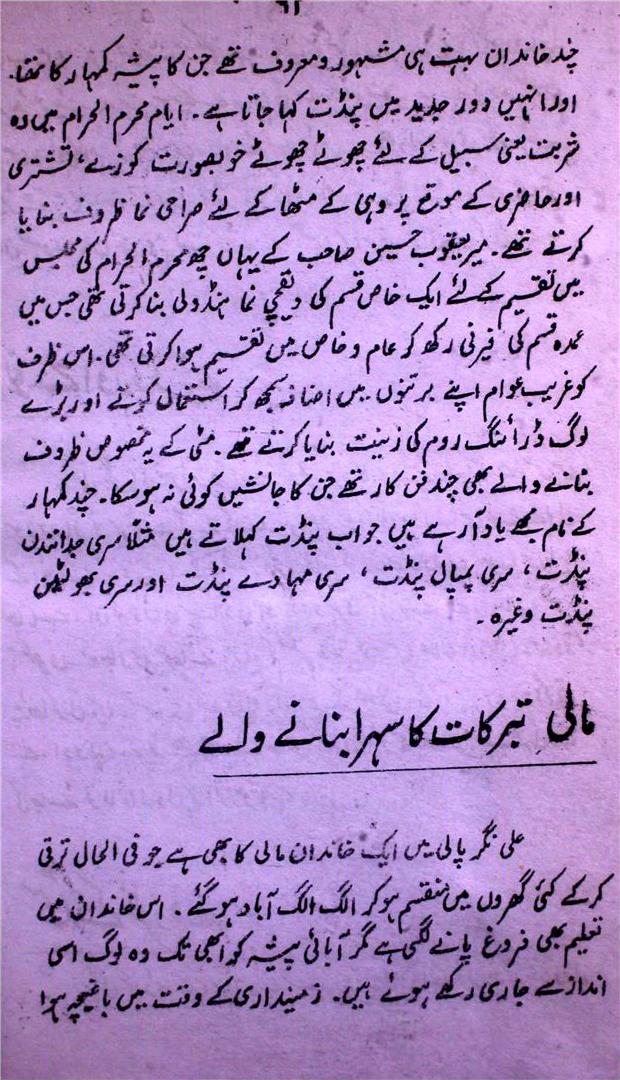 ۶۱
چند خاندان بہت ہی مشہور و معروف تھے جن کا پیشہ کمہار کا تھا۔
اور انہیں دور جدید میں پنڈت کہا جاتا ہے۔ ایام محرم الحرام میں وہ
شربت یعنی سبیل کے لئے چھوٹے چھوٹے خوبصورت کوزے، تشتری
اور حاضری کے موقع پر دہی کے مٹھا کے لئے صراحی نما ظروف بنایا
کرتے تھے۔ میر یعقوب حسین صاحب کے یہاں چھ محرم الحرام کی مجلس
میں تقسیم کیلئے ایک خاص قسم کی دیگچی نما ہنڈولی بنا کرتی تھی جس میں
عمدہ قسم کی فیرنی رکھ کر عام و خاص میں تقسیم ہوا کرتی تھی۔ اس ظرف
کو غریب عوام اپنے برتنوں میں اضافہ سمجھ کر استعمال کرتے اور بڑے
لوگ ڈرائنگ روم کی زینت بنایا کرتے تھے۔ مٹی کے یہ مخصوص ظروف
بنانے والے بھی چند فن کار تھے جن کا جانشیں کوئی نہ ہو سکا۔ چند کمہار
کے نام مجھے یاد آ رہے ہیں جو اب پنڈت کہلاتے ہیں مثلاً سری
پنڈت، سری پنڈت، سری مہادے پنڈت اور سری
پنڈت وغیرہ۔
مالی تبرکات کا سہرا بنانے والے
علی نگر پالی میں ایک خاندان مالی کا بھی ہے جو فی الحال ترقی
کر کے کئی گھروں میں منقسم ہو کر الگ الگ آباد ہو گئے۔ اس خاندان میں
تعلیم بھی فروغ پانے لگی ہے مگر آبائی پیشہ کو ابھی تک وہ لوگ اسی
انداز سے جاری رکھے ہوئے ہیں۔ زمینداری کے وقت میں باغیچہ ہوا